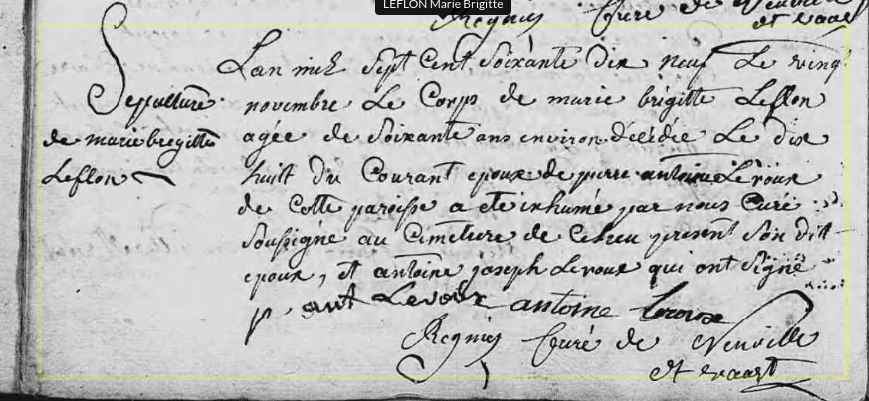 LEFLON Marie Brigitte
Regnier Curé de Neuville
et vaast
Sepulture
de marie brigitte
Leflon
Lan mil Sept Cent Soixante dix neuf Le vingt
novembre Le Corps de marie brigitte Leflon
agée de Soixante ans environ décédée Le dix
huit du Courant epouse de pierre antoine Leroux
de Cette paroisse a eté inhumé par nous Curé
Soussigné au Cimetiere de Ce lieu present Son dit
epoux, et antoine joseph Leroux qui ont Signé
p. ant Leroux antoine Leroux
Curé de Neuville
et vaast